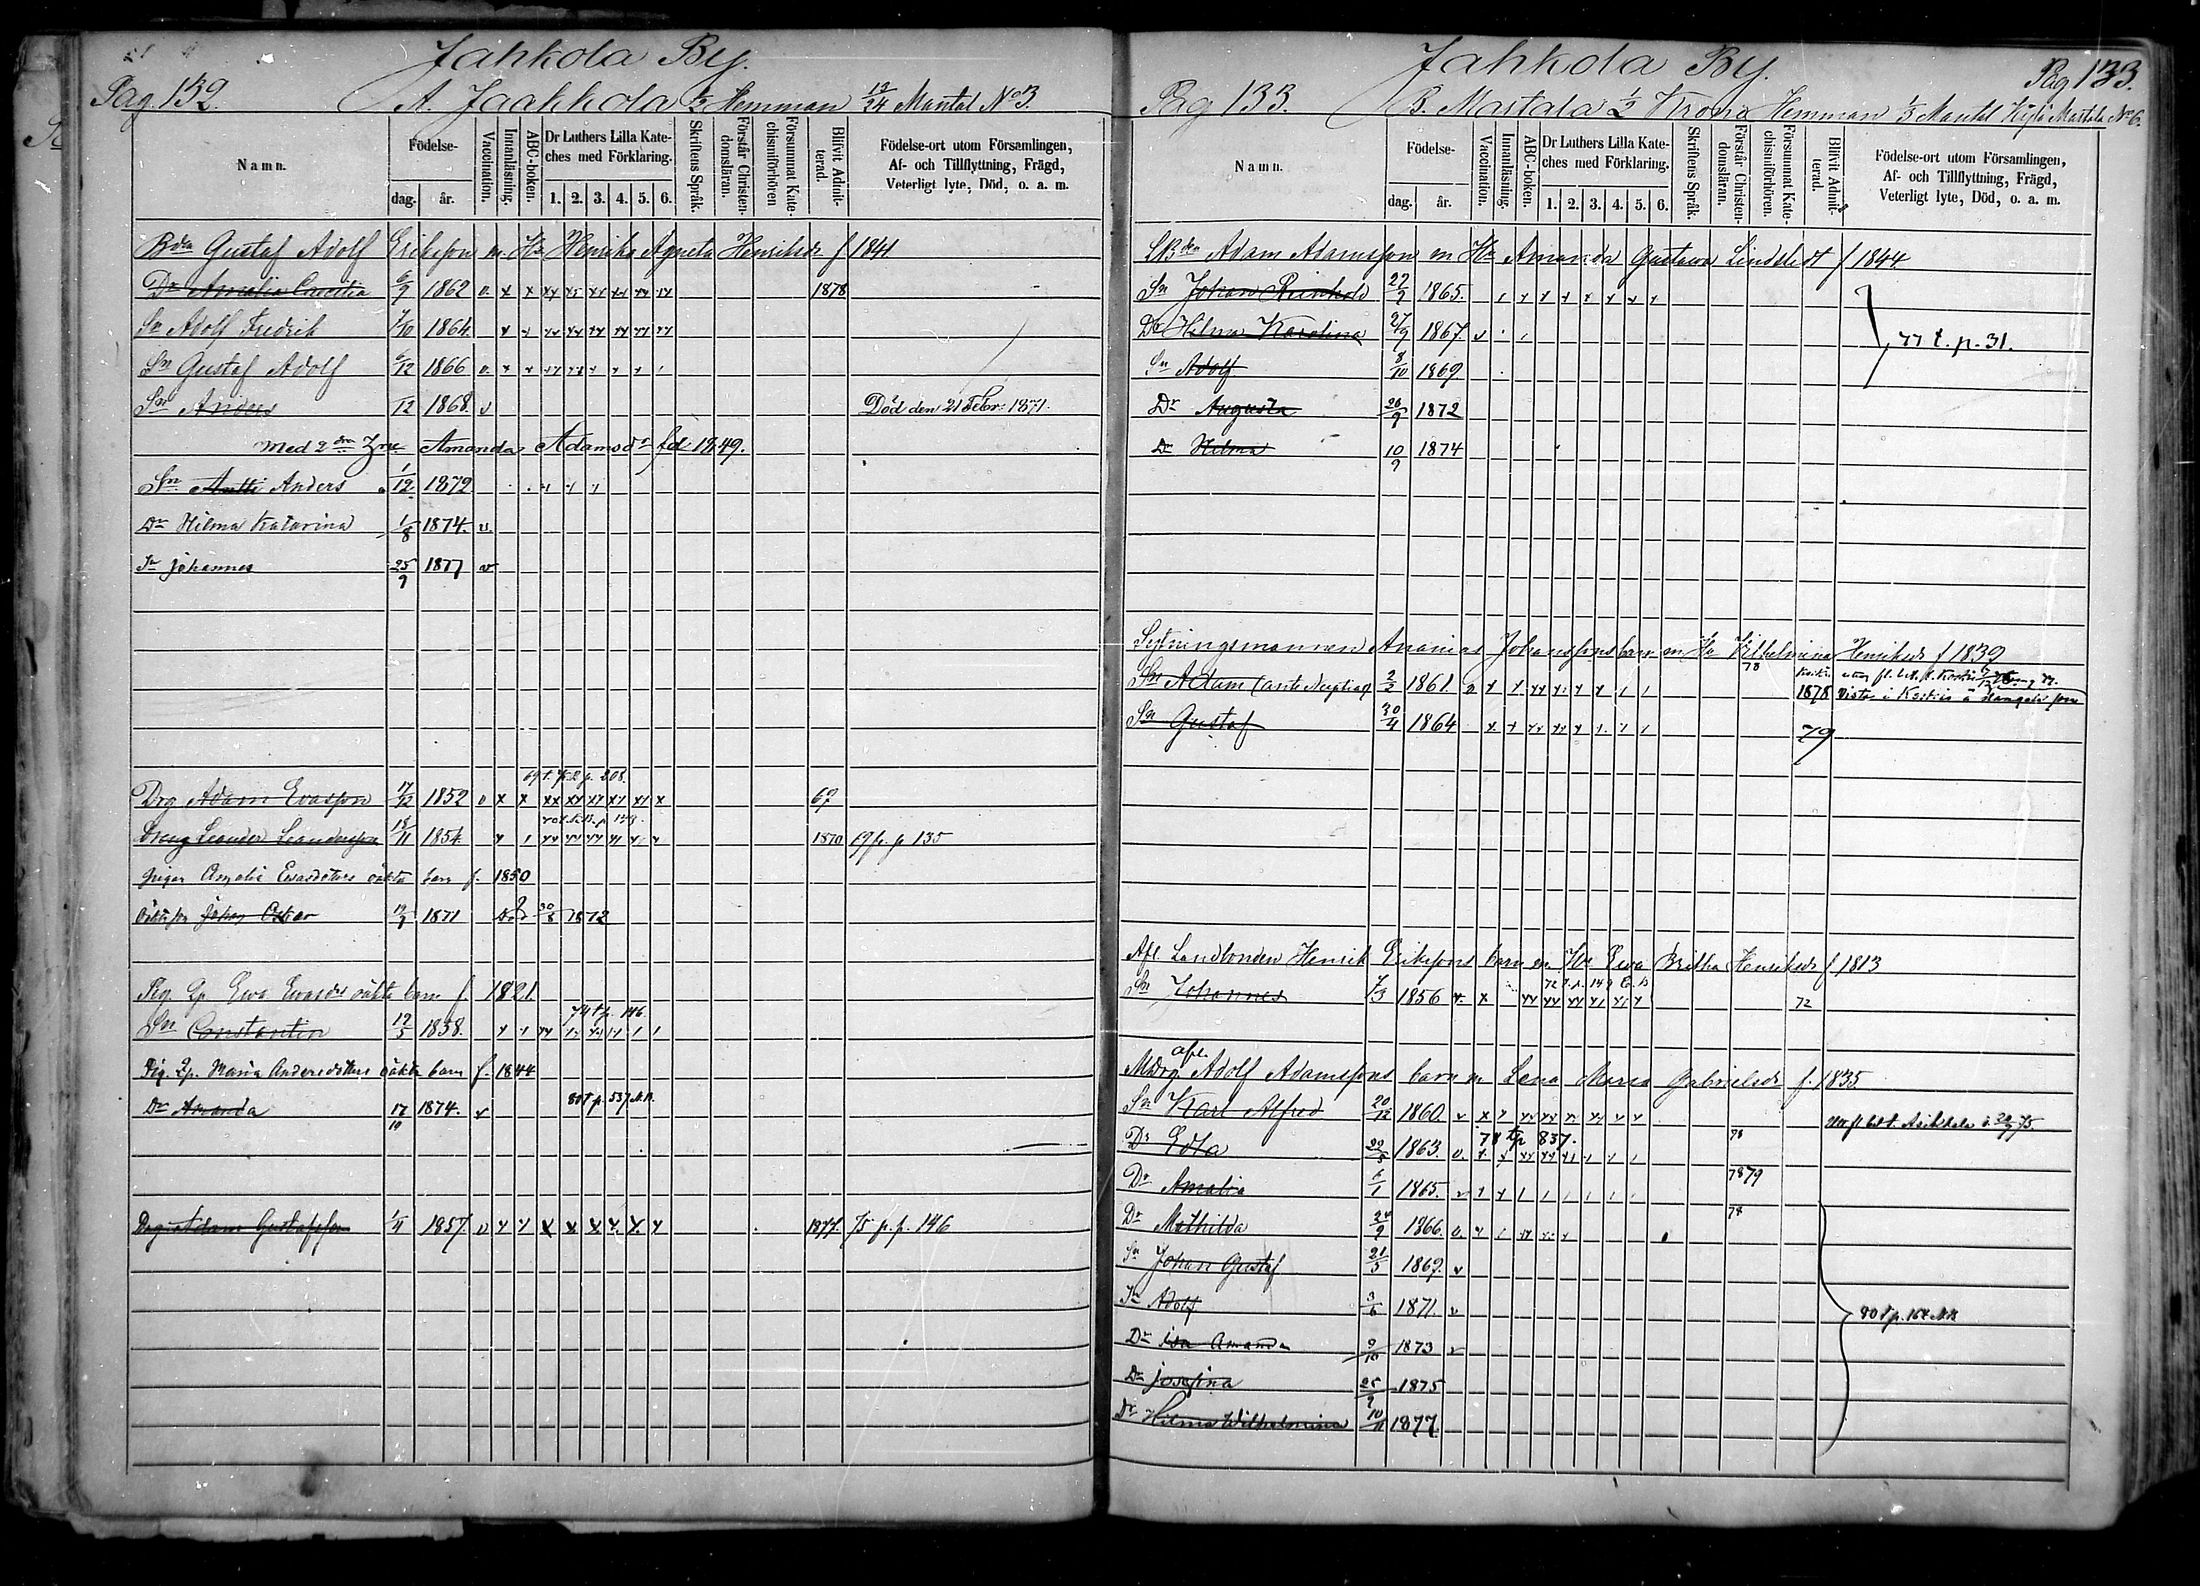 Jahkola By.
Pag. 132. A. Jaakkola 1/2 Hemman 12/24 Mantal No 3.
Namn. Födelse- dag. år. Vaccination. Innanläsning. ABC-boken. Dr Luthers Lilla Kateches med Förklaring. 1. 2. 3. 4. 5. 6. Skriftens Språk. Förstår Christendomsläran. Försummat Katechismiförhören Blifvit Admitterad. Födelse-ort utom Församlingen, Af- och Tillflyttning, Frägd, Veterligt lyte, Död, o. a. m.
Bda Gustaf Adolf Eriksson m. Ha Henrika Agneta Henriksdr f 1841
Dr Amalia Cecilia 6/9 1862 v. x x xx xx xx xx xx xx 1878
Sn Adolf Fredrik 7/10 1864
Sn Gustaf Adolf 6/12 1866 v.
Sn Anders /12 1868. v Död den 21 Febr. 1871.
Med 2dra Amanda Adamsdr fd 1849.
Sn Antti Anders 1/12 1872
Dr Hilma Katarina 1/8 1874. v.
Sn Johannes 25/9 1877 v
69 t. p. 208.
Drg Adam Evasson 17/12 1852 v x x xx xx xx xx xx x 67
Dreng Leander Leandersson 18/11 1854 1870 69 fr. p 135
Pigan Amalia Evasdotters oäkta barn f. 1850
Oäkta sn Johan Oskar 19/9 1871 Död 30/8 1872
Pig. Lp. Eva Evasdrs oäkta barn f. 1821
74 t p. 146.
Sn Constantin 19/5 1858.
Pig. Lp. Maria Andersdotters oäkta barn f. 1844
Dr Amanda 17/10 1874. v 80 t p. 537 N.B.
Adam Gustafsson 1/4 1857. v x x x x x x x x 1877. 75 fr. p. 146
Jahkola By. Pag 133.
Pag 133. B. Mastala 1/2 Krono Hemman 1/3 Mantal Mastala No 6.
Namn. Födelse- dag. år. Vaccination. Innanläsning. ABC-boken. Dr Luthers Lilla Kateches med Förklaring. 1. 2. 3. 4. 5. 6. Skriftens Språk. Förstår Christendomsläran. Försummat Katechismiförhören. Blifvit Admitterad. Födelse-ort utom Församlingen, Af- och Tillflyttning, Frägd, Veterligt lyte, Död, o. a. m.
Adam Adamsson m Ha Amanda Gustava Lindstedt f 1844.
Sn Johan Reinhold 27/9 1865.
Dr Hilma Karolina 27/9 1867. v
77 t. p. 31.
Sn Adolf 8/10 1869
Dr Augusta 26/9 1872
Dr Hilma 10/9 1874
Sytningsmannen Ananias Johanssons barn m Ha Vilhelmina Henriksdr f 1839
Sn Adam (ante Nuptias) 2/2 1861. 78 1878
Sn Gustaf 30/4 1864 79
Afl. Landbonden Henrik Erikssons barn m Ha Eva Britha Henriksdr f 1813
Sn Johannes 7/3 1856 72
afl.
Mdrg. Adolf Adamssons barn m Lena Maria Gabrielsdr f. 1835
Sn Karl Alfred 20/12 1860. v
Dr Edla 22/5 1863. v. 78 tp 837. 78
Dr Amalia 6/1 1865. v 7879
Dr Mathilda 24/9 1866. v. 78
Sn Johan Gustaf 21/5 1869. v
Sn Adolf 3/6 1871. v
80 t p. 164 N.B
Dr Ida Amanda 9/10 1873 v
Dr Josefina 25/9 1875
Dr Hilma Wilhelmina 10/11 1877.